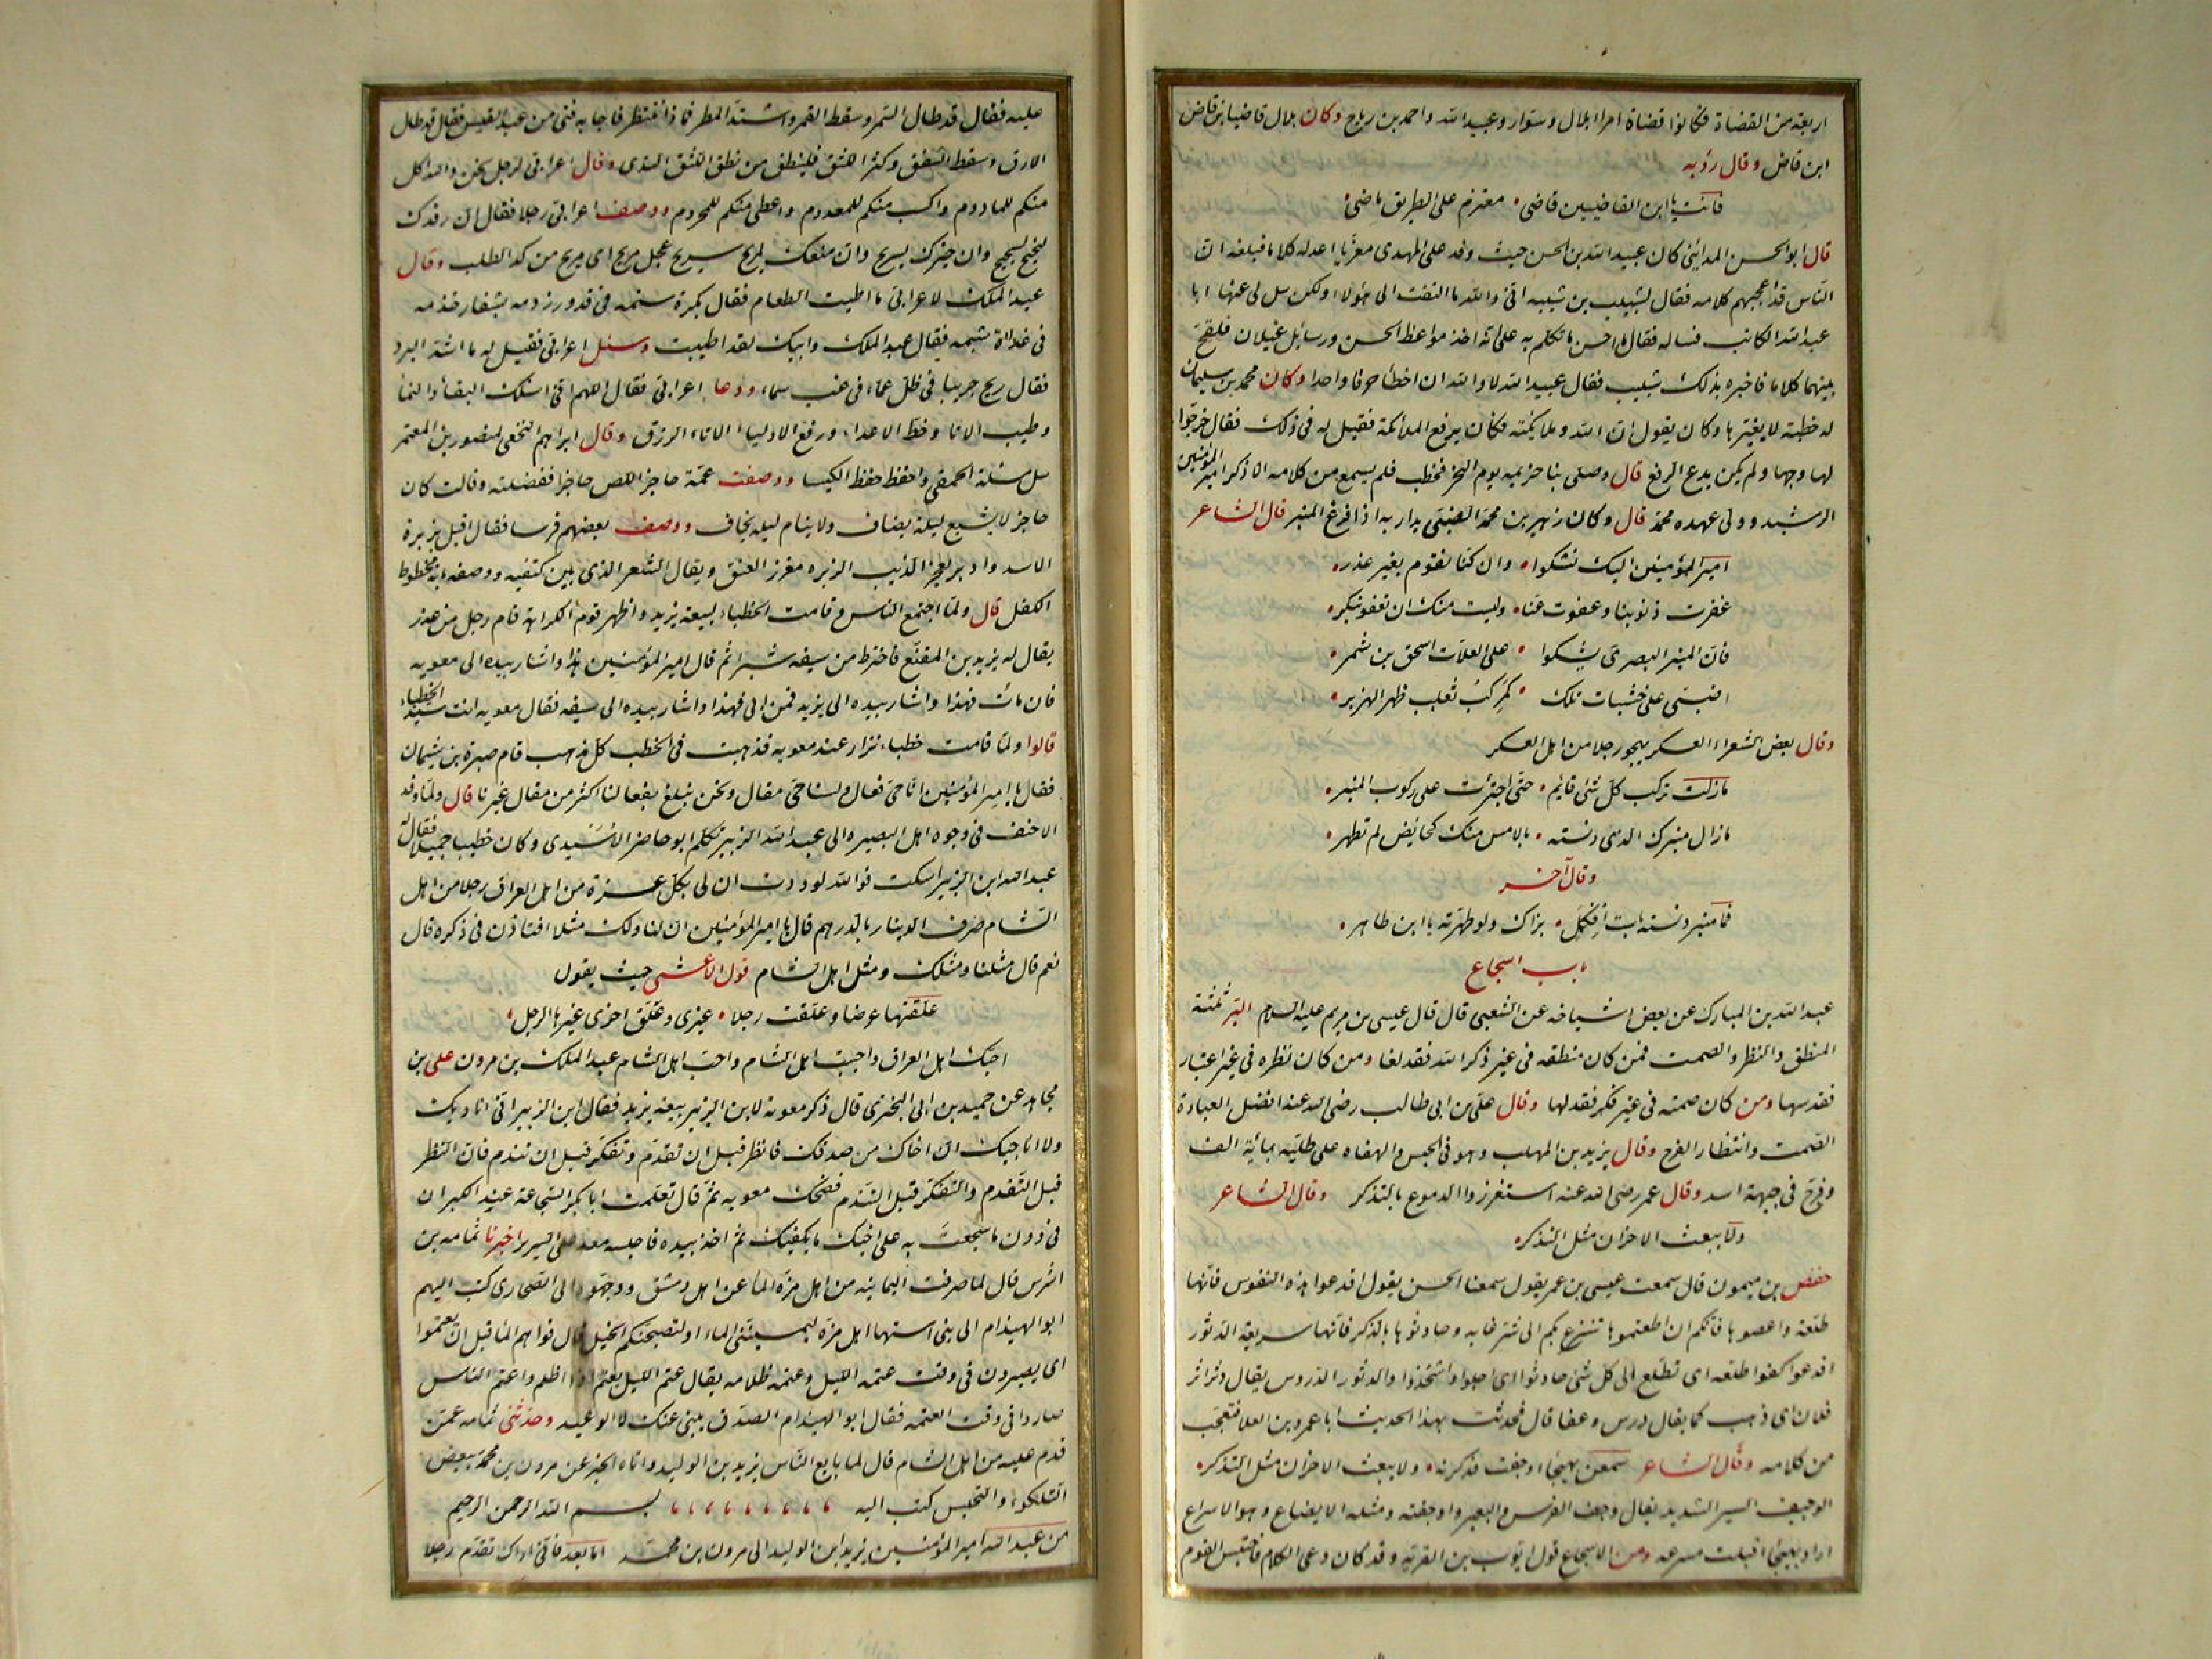 اربعة من القضاة فكانوا قضاة امراء بلال وسوار وعبيد الله واحمد بن رباح وكان بلال قاضيا بن قاض
ابن قاض وقال رؤبه
فانت يا ابن القاضيين قاضى معتزم على الطريق ماضى
قال ابو الحسن المدائنى كان عبيد الله بن الحسن حيث وفد على المهدى معزيا اعد له كلاما فبلغه ان
الناس قد اعجبهم كلامه فقال لشبيب بن شيبه انى والله ما التفت الى هؤلاء ولكن سل لى عنها ابا
عبد الله الكاتب فساله فقال ما احسن ما تكلم به على انه اخذ مواعظ الحسن ورسايل غيلان فلقح
بينهما كلاما فاخبره بذلك شبيب فقال عبيد الله لا والله ان اخطأ حرفا واحدا وكان محمد بن سليمان
له خطبة لا يغيرها وكان يقول ان الله وملايكته فكان يرفع الملائكة فقيل له فى ذلك فقال خرجوا
لها وجها ولم يكن يدع الرفع قال وصلى بنا خزيمه يوم النحر فخطب فلم يسمع من كلامه الا ذكر امير المؤمنين
الرشيد وولى عهده محمد قال وكان زهير بن محمد الضبى يدار به اذا فرغ المنبر قال الشاعر
امير المؤمنين اليك نشكوا وان كنا نقوم بغير عذر
غفرت ذنوبنا وعفوت عنا وليست منك ان تعفو بنكر
فان المنبر البصرى يشكوا على العلات اسحق بن شمر
اضبى على خشبات ملك كمركب ثعلب ظهر الهزبر
وقال بعض الشعراء العسكر يهجو رجلا من اهل العسكر
مازلت تركب كل شئ قايم حتى اجترئت على ركوب المنبر
مازال منبرك الذى دنسته بالامس منك كحائض لم تطهر
وقال آخر
فما منبر دنسته باست افكل بزاك ولو طهرته يا ابن طاهر
باب اسجاع
عبد الله بن المبارك عن بعض اشياخه عن الشعبى قال قال عيسى بن مريم عليه السلام البر ثلثة
المنطق والنظر والصمت فمن كان منطقه فى غير ذكر الله فقد لغا ومن كان نظره فى غير اعتبار
فقد سها ومن كان صمته فى غير فكر فقد لها وقال على بن ابى طالب رضى الله عنه افضل العبادة
الصمت وانتظار الفرج وقال يزيد بن المهلب وهو فى الحبس والهفاه على طلية بمائة الف
وفرج فى جبهة اسد وقال عمر رضى الله عنه استغزروا الدموع بالتذكر وقال الشاعر
ولا يبعث الاحزان مثل التذكر
حفص بن ميمون قال سمعت عيسى بن عمر يقول سمعنا الحسن يقول اقدعوا هذه النفوس فانها
طلعة واعصوها فانكم ان اطعتموها تنزع بكم الى شر غايه وحادثوها بالذكر فانها سريعة الدثور
اقدعوا كفوا طلعه اى تطلع الى كل شئ حادثوا اى اجلوا واشحذوا والدثور الدروس يقال دثر اثر
فلان اى ذهب كما يقال درس وعفا قال فحدثت بهذا الحديث ابا عمرو بن العلا فتعجب
من كلامه وقال الشاعر سمعن بهيجا اوجفت فذكرنه ولا يبعث الاحزان مثل التذكر
الوجيف السير الشديد يقال وجف الفرس والبعير واوجفته ومثله الايضاع وهو الاسراع
اراد بهيجا اقبلت مسرعه ومن الاسجاع قول ايوب بن القريه وقد كان دعى الكلام فاحتبس القوم
عليه فقال قد طال السمر وسقط القمر واشتد المطر فما ذا ننتظر فاجابه فتى من عبد القيس فقال قد طال
الارق وسقط الشفق وكثر اللثق فلينطق من نطق اللثق الندى وقال اعرابى لرجل نحن والله اكل
منكم للمادوم واكسب منكم للمعدوم واعطى منكم للمحروم ووصف اعرابى رجلا فقال ان رفدك
لنجيح وان خيرك لسريح وان منعك لمريح سريح عجل مريح اى مريح من كد الطلب وقال
عبد الملك لاعرابى ما اطيب الطعام فقال بكرة سنمه فى قدور رذمه بشفار خذمه
فى غداة شبمه فقال عبد الملك وابيك لقد اطيبت وسئل اعرابى فقيل له ما اشد البرد
فقال ريح جربيا فى ظل عماء فى غب سماء ودعا اعرابى فقال اللهم انى اسئلك البقاء والنما
وطيب الاتا وحط الاعداء ورفع الاوليا الاتاء الرزق وقال ابراهيم النخعى لمنصور بن المعتمر
سل مسئلة الحمقى واحفظ حفظ الكيسا ووصفت عمة حاجز اللص حاجزا ففضلته وقالت كان
حاجز لا يشبع ليلة يضاف ولا ينام ليله يخاف ووصف بعضهم فرسا فقال اقبل بزبرة
الاسد وادبر بعجز الذيب الزبره مغرز العنق ويقال الشعر الذى بين كتفيه ووصفه بانه محطوط
الكفل قال ولما اجتمع الناس وقامت الخطباء لبيعة يزيد واظهر قوم الكراهة قام رجل من عذر
يقال له يزيد بن المقنع فاخترط من سيفه شبرا ثم قال امير المؤمنين هذا واشار بيده الى معويه
فان مات فهذا واشار بيده الى يزيد فمن ابى فهذا واشار بيده الى سيفه فقال معويه انت سيد الخطباء
قالوا ولما قامت خطباء نزار عند معويه فذهبت فى الخطب كل مذهب قام صبرة بن شيمان
فقال يا امير المؤمنين انا حى فعال ولسنا حى مقال ونحن نبلغ بفعالنا اكثر من مقال غيرنا قال ولما وفد
الاحنف فى وجوه اهل البصره الى عبد الله الزبير تكلم ابو حاضر الاسيدى وكان خطيبا جميلا فقال له
عبد الله ابن الزبير اسكت فوالله لوددت ان لى بكل عشرة من اهل العراق رجلا من اهل
الشام صرف الدينار بالدرهم قال يا امير المؤمنين ان لنا ولك مثلا افتاذن فى ذكره قال
نعم قال مثلنا ومثلك ومثل اهل الشام قول الاعشى حيث يقول
علقتها عرضا وعلقت رجلا غيرى وعلق اخرى غيرها الرجل
احبك اهل العراق واحببت اهل الشام واحب اهل الشام عبد الملك بن مرون على بن
مجاهد عن حميد بن ابى البخترى قال ذكر معوية لابن الزبير بيعة يزيد فقال ابن الزبير انى اناديك
ولا اناجيك ان اخاك من صدقك فانظر قبل ان تقدم وتفكر قبل ان تندم فان النظر
قبل التقدم والتفكر قبل التندم فضحك معويه ثم قال تعلمت ابا بكر السجاعة عند الكبر ان
فى دون ما سجعت به على اخيك ما يكفيك ثم اخذ بيده فاجلسه معه على السرير اخبرنا ثمامه بن
اشرس قال لما صرفت اليمانيه من اهل مزة الماء عن اهل دمشق ووجهوه الى الصحارى كتب اليهم
ابو الهيذام الى بنى استها اهل مزه ليمسينى الماء او لتصبحنكم الخيل قال فوافاهم الما قبل ان يعتموا
اى يصيرون فى وقت عتمه الليل وعتمه ظلامه يقال عتم الليل يعتم اذا اظلم واعتم الناس
صاروا فى وقت العتمه فقال ابو الهيذام الصدق ينبى عنك لا الوعيد وحدثنى ثمامه عمن
قدم عليه من اهل الشام قال لما بايع الناس يزيد بن الوليد واتاه الخبر عن مرون بن محمد ببعض
التلكوء والتحبس كتب اليه بسم الله الرحمن الرحيم
من عبد الله امير المؤمنين يزيد ابن الوليد الى مرون بن محمد اما بعد فانى اراك تقدم رجلا